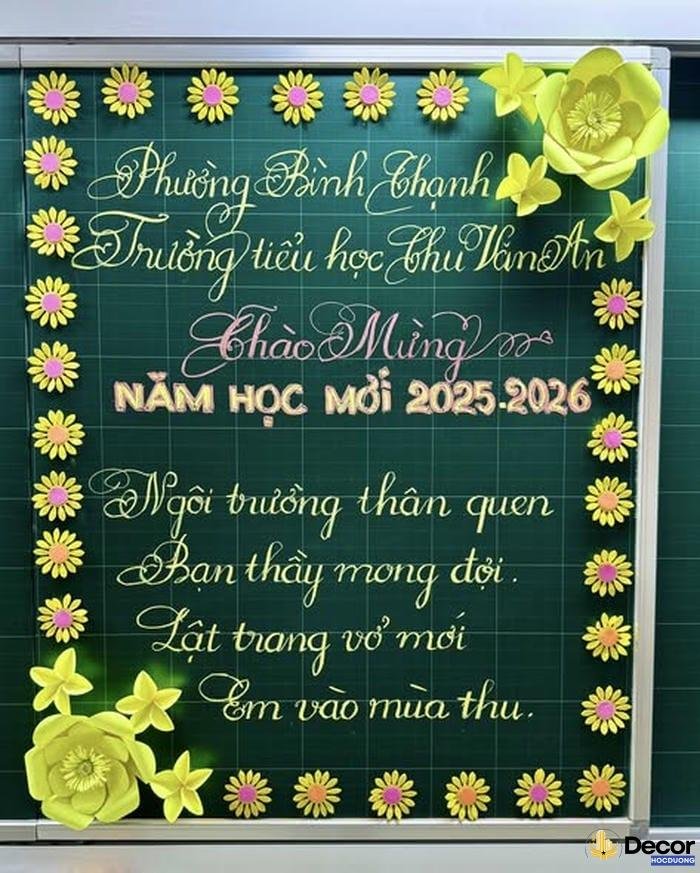 Phường Bình Thạnh
Trường tiểu học Chu Văn An
Chào Mừng
NĂM HỌC MỚI 2025-2026
Ngôi trường thân quen
Bạn thầy mong đợi.
Lật trang vở mới
Em vào mùa thu.
Decor
HOCDUONG